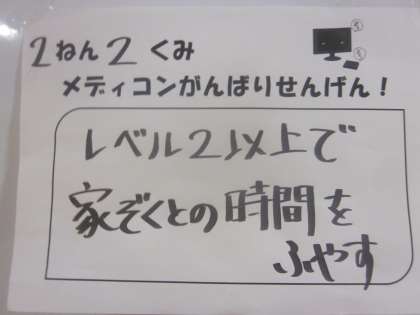 2ねん2くみ
メディコンがんばりせんげん！
レベル2以上で
家ぞくとの時間を
ふやす